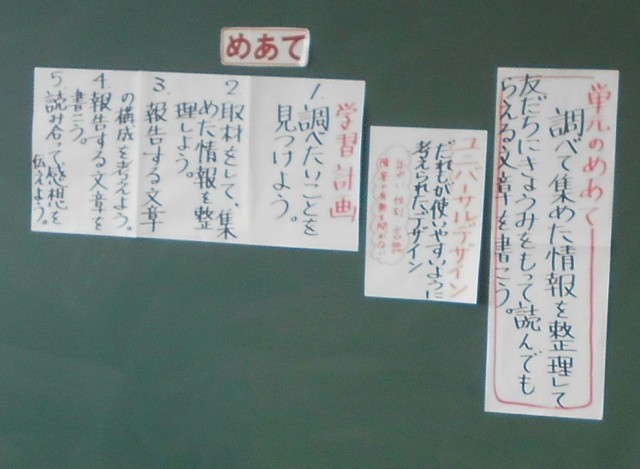 めあて
単元のめあて
調べて集めた情報を整理して
友だちにきょうみをもって読んでも
らえる文章を書こう。
ユニバーサルデザイン
だれもが使いやすいように
考えられたデザイン
年れい 性別 言語
障害の有無を問わない
学習計画
1. 調べたいことを
見つけよう。
2. 取材をして、集
めた情報を整
理しよう。
3. 報告する文章
の構成を考えよう。
4. 報告する文章を
書こう。
5. 読み合って感想を
伝えよう。